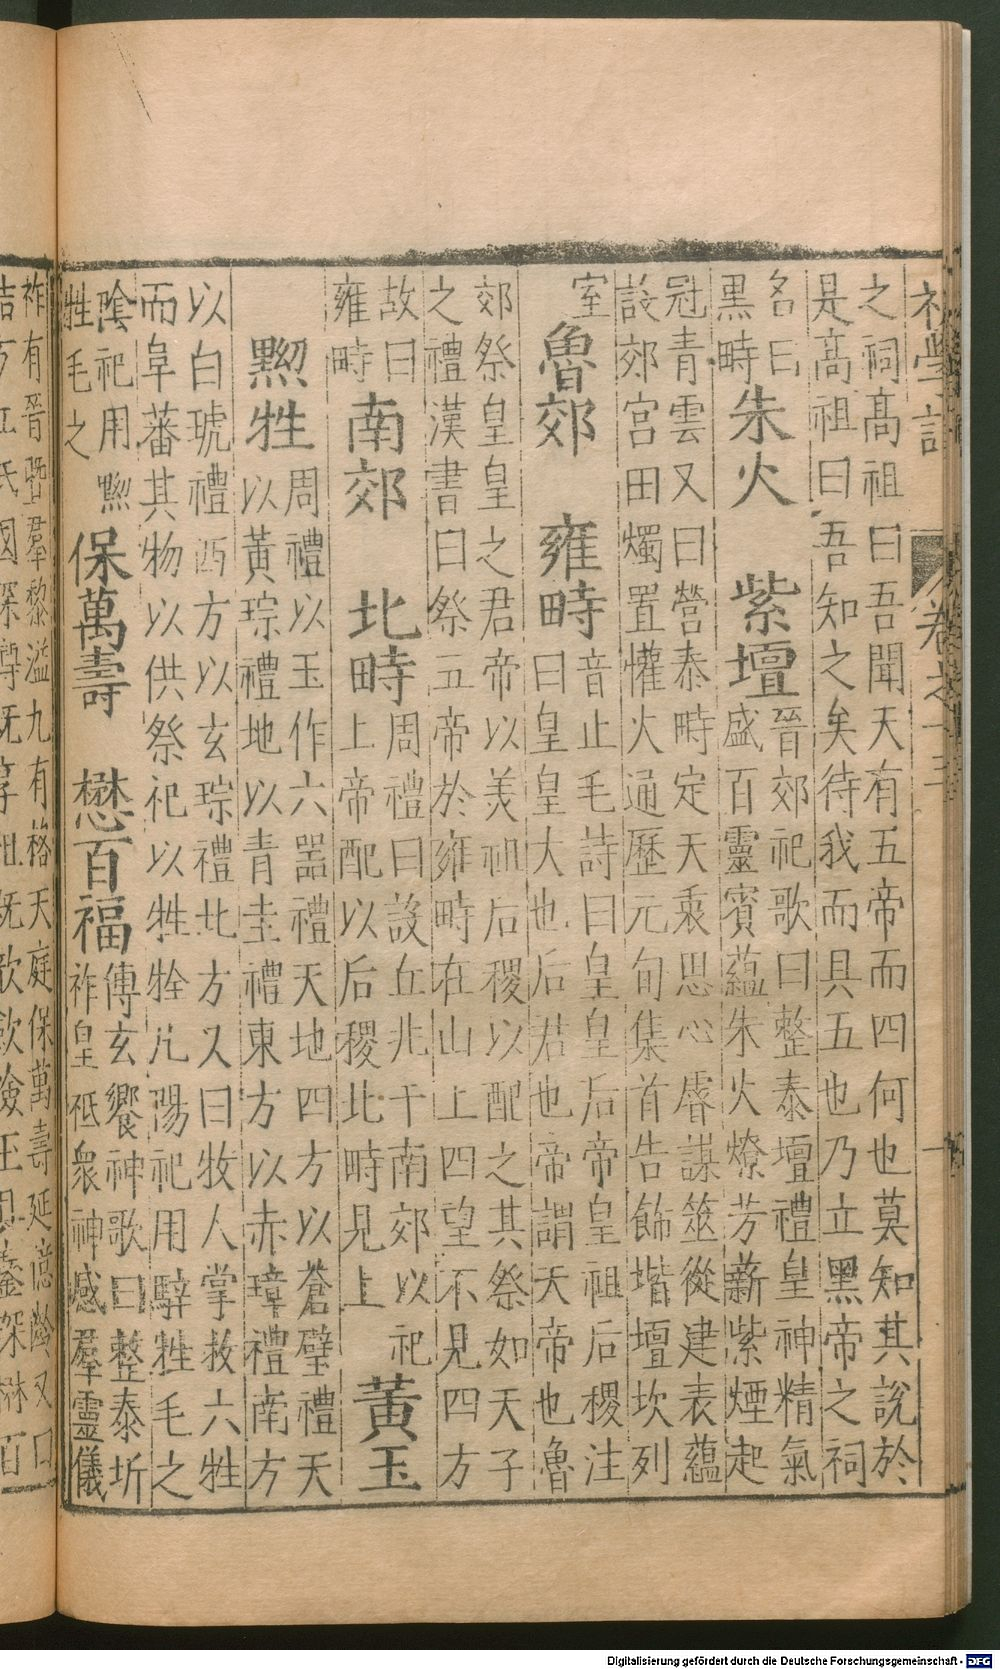 初學記 卷之十三
之祠高祖曰吾聞天有五帝而四何也莫知其說於
是高祖曰吾知之矣待我而具五也乃立黑帝之祠
名曰
黑畤
朱火 紫壇
晉郊祀歌曰整泰壇禮皇神精氣
盛百靈賓蘊朱火燎芳薪紫煙起
冠青雲又曰營泰畤定天衷思心睿謀筮從建表蘊
設郊宮田燭置爟火通歷元旬集首告飾堦壇坎列
室
魯郊 雍畤
音止毛詩曰皇皇后帝皇祖后稷注
曰皇皇大也后君也帝謂天帝也魯
郊祭皇皇之君帝以美祖后稷以配之其祭如天子
之禮漢書曰祭五帝於雍畤在山上四望不見四方
故曰
雍畤
南郊 北畤
周禮曰設丘兆于南郊以祀
上帝配以后稷北畤見上
黃玉
黝牲
周禮以玉作六器禮天地四方以蒼璧禮天
以黃琮禮地以青圭禮東方以赤璋禮南方
以白琥禮西方以玄琮禮北方又曰牧人掌救六牲
而阜蕃其物以供祭祀以牲牷凡陽祀用騂牲毛之
陰祀用黝
牲毛之
保萬壽 懋百福
傳玄饗神歌曰整泰圻
祚皇祗衆神感羣靈儀
祚有晉曁羣黎溢九有格天庭保萬壽延億齡又曰
Digitalisierung gefördert durch die Deutsche Forschungsgemeinschaft - DFG